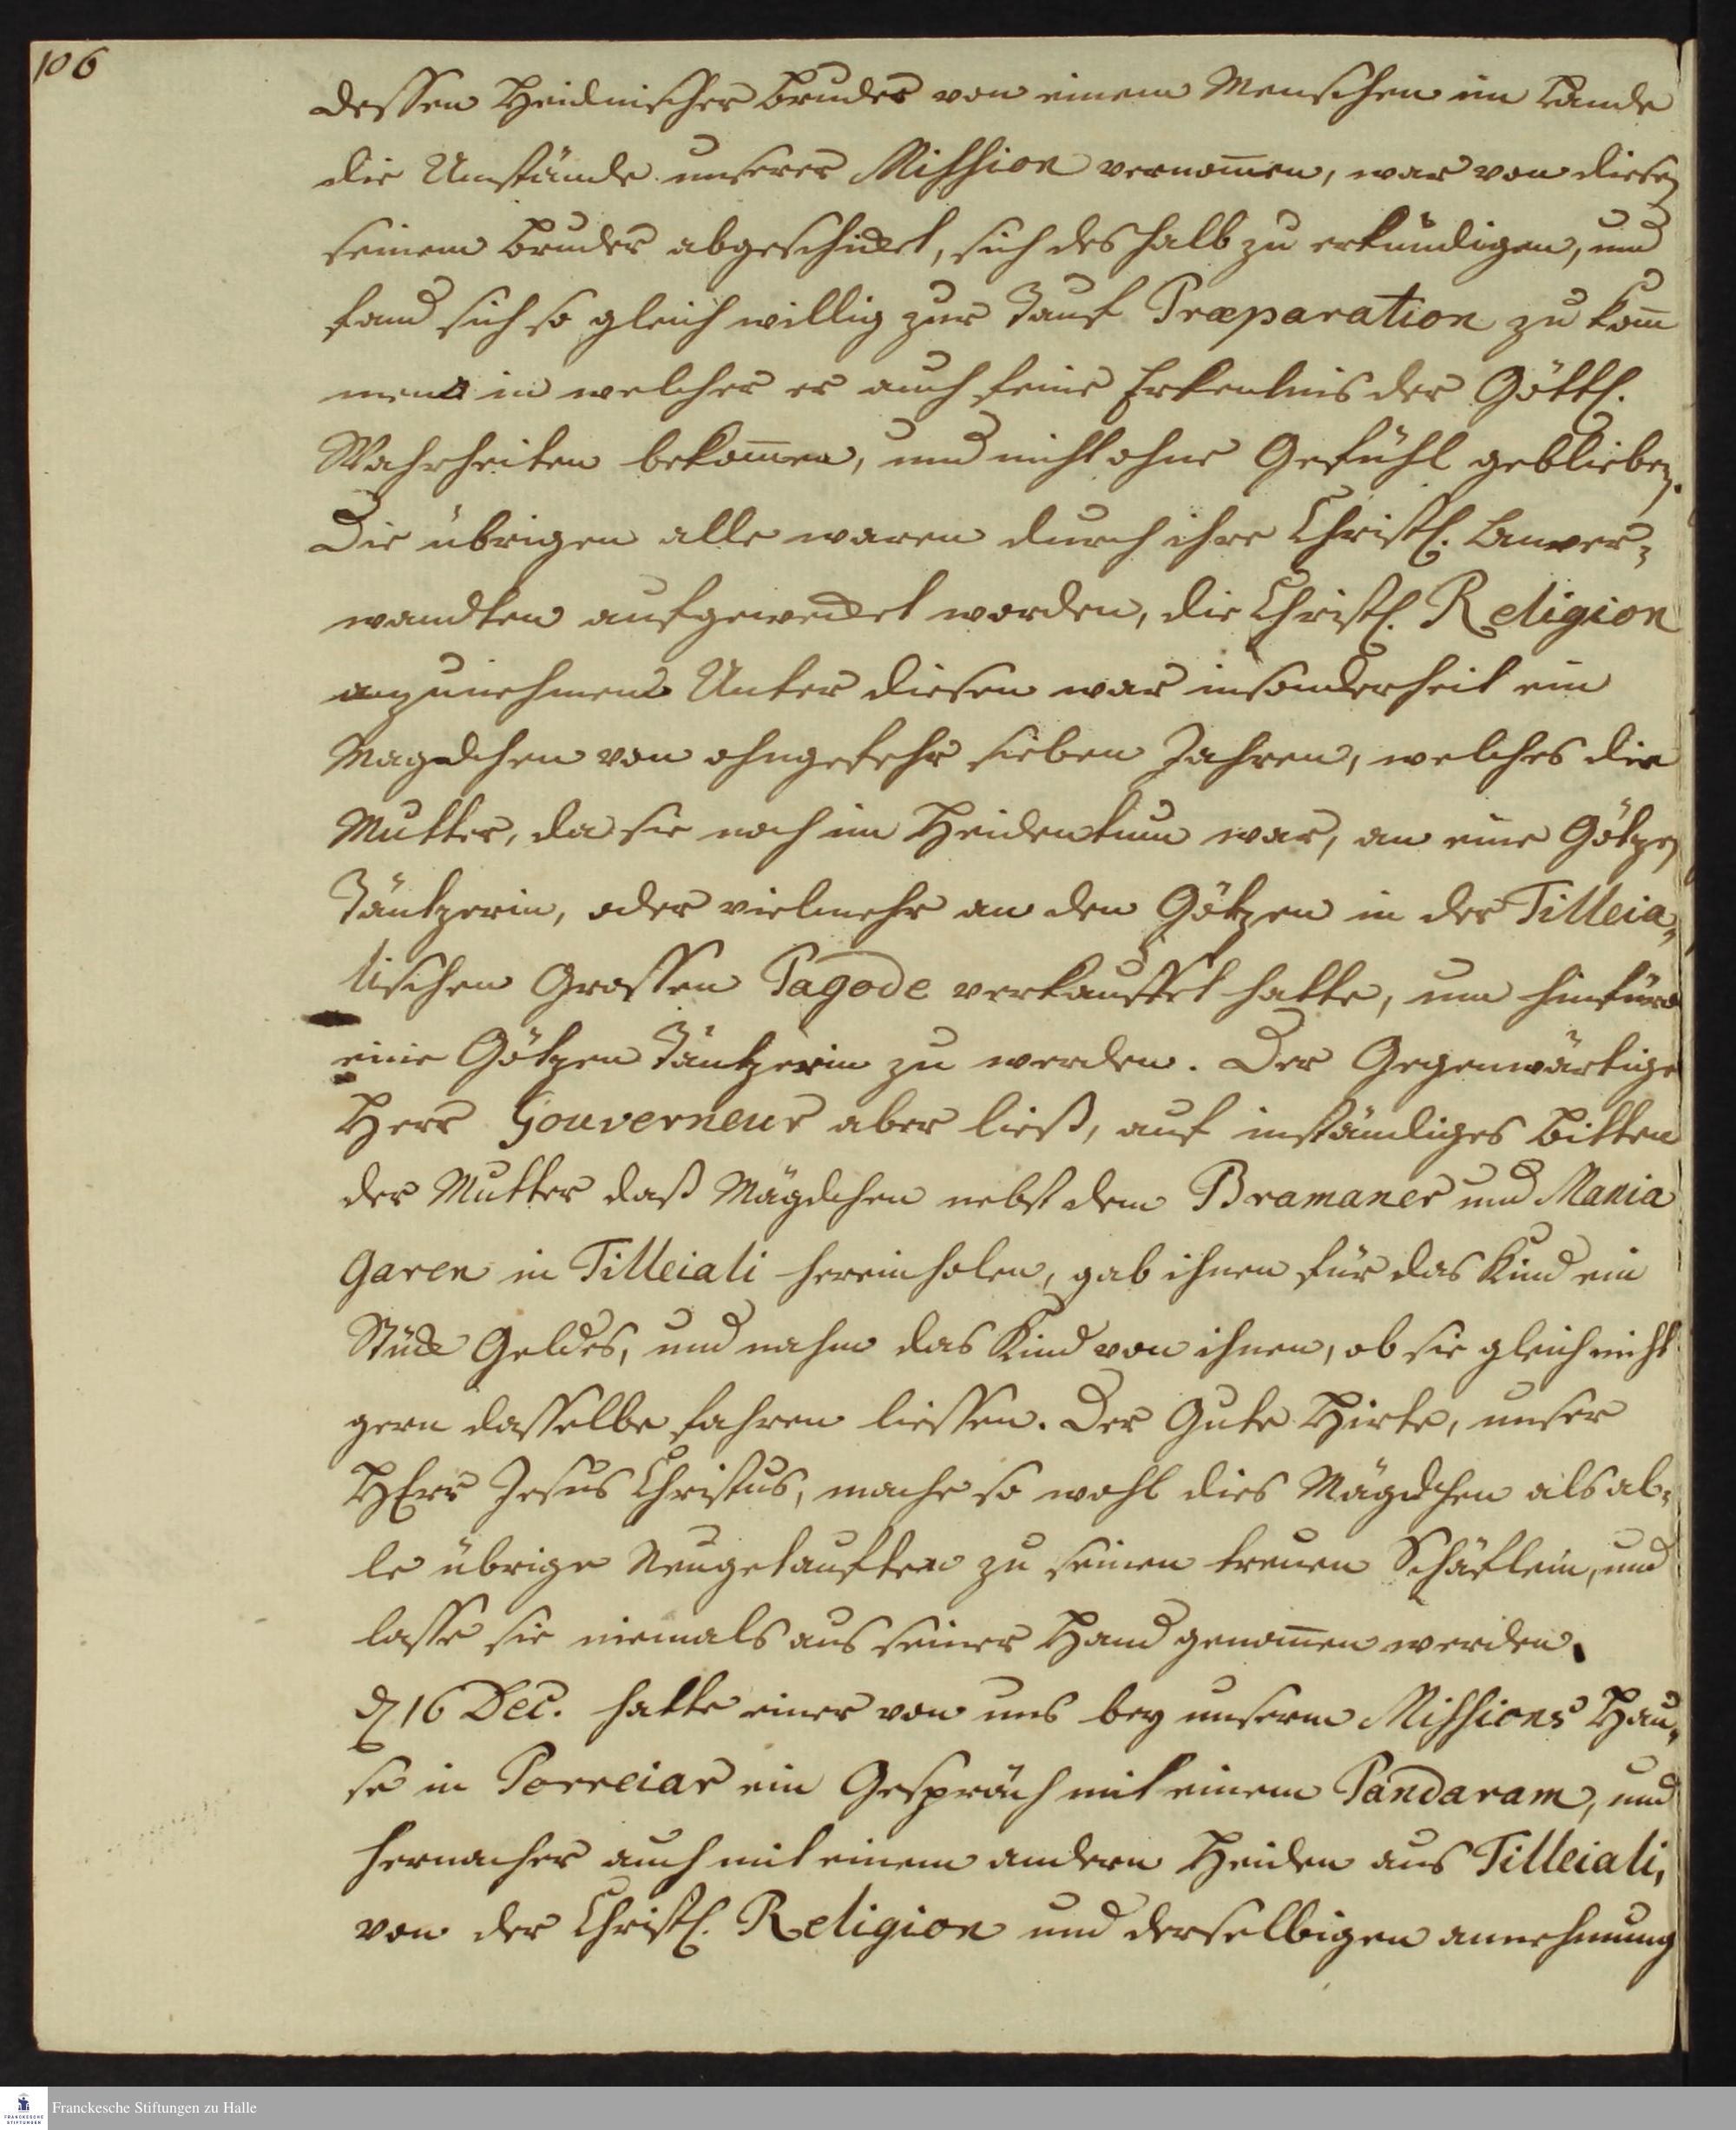 106
dessen Heidnischer Bruder von einem Menschen im Lande
die Umstände unserer Mission vernom̅en, war von diesen
seinem Bruder abgeschickt, sich deshalb zu erkundigen, und
fand sich so gleich willig zur Tauf Præparation zu kom̅
men in welcher er auch feine Erkentnis der Göttl.
Wahrheiten bekom̅en, und nicht ohne Gefühl geblieben.
Die übrigen alle waren durch ihre Christl. Anver-
wandten aufgewecket worden, die Christl. Religion
anzunehmen. Unter diesen war insonderheit ein
Magdchen von ohngefehr sieben Jahren, welches die
Mutter, da sie noch im Heidentum war, an eine Götzen
Täntzerin, oder vielmehr an den Götzen in der Tilleia-
lischen Grossen Pagode verkauffet hatte, um hinfüro
eine Götzen Täntzerin zu werden. Der Gegenwärtige
Herr Gouverneur aber ließ, auf inständiges Bitten
der Mutter daß Mägdchen nebst dem Bramaner und Mania
Garen in Tilleiali hereinholen, gab ihnen für das Kind ein
Stück Geldes, und nahm das Kind von ihnen, ob sie gleich nicht
gern dasselbe fahren liessen. Der Gute Hirte, unser
HErr Jesus Christus, mache so wohl dies Mägdchen als al-
le übrige Neugetauften zu seinen treuen Schäflein, und
lasse sie niemals aus seiner Hand genom̅en werden.
d 16 Dec. hatte einer von uns bey unserm Missions Hau-
se in Poreiar ein Gespräch mit einem Pandaram, und
hernacher auch mit einem andern Heiden aus Tilleiali,
von der Christl. Religion und derselbigen annehmung
Franckesche Stiftungen zu Halle
FRANCKESCHE
STIFTUNGEN